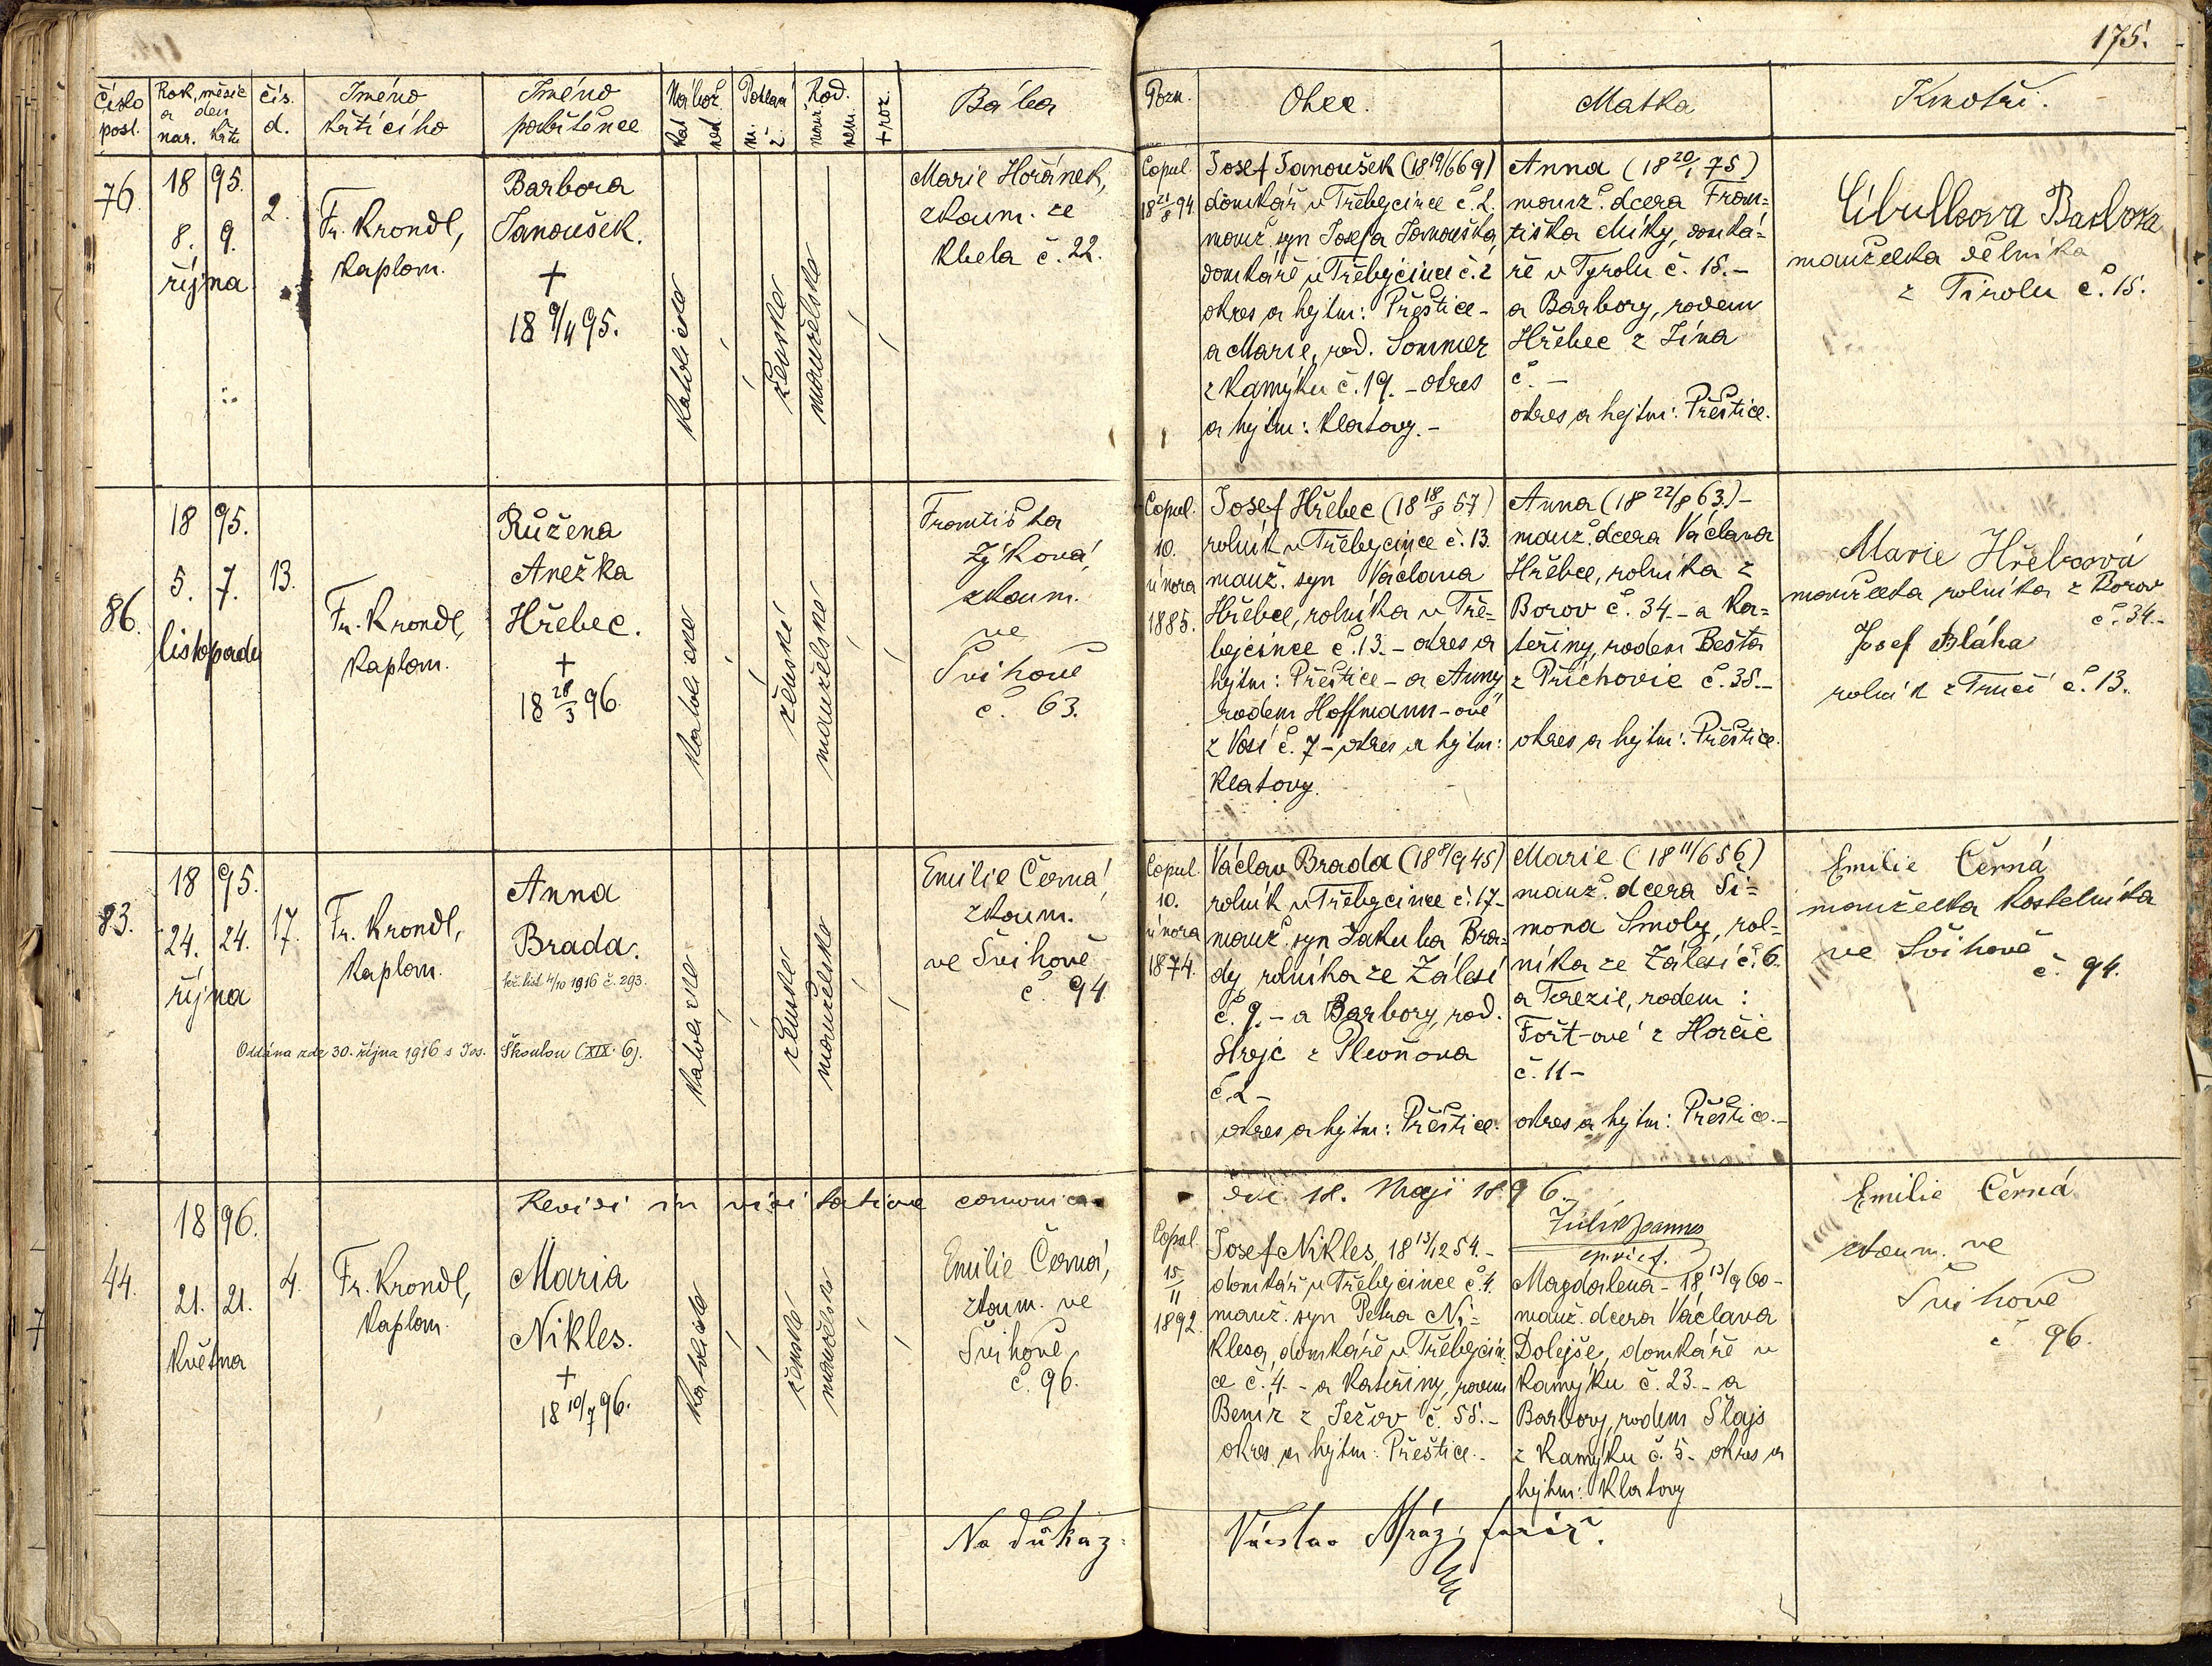 175.
Číslo posl. Rok, měsíc a den nar. křtu čís. d. Jméno křtícího Jméno pokřtěnce Nábož. kat. nek. Pohlaví m. ž. Rod. manž. nem. +roz. Bába Pozn. Otec. Matka Kmotři.
76.
18 95.
8. 9.
října
2.
Fr. Krondl,
kaplan.
Barbora
Janoušek.
+
18 9/11 95.
katolické
ženské
manželské
Marie Horánek,
zkoum. ze
Kbela č. 22.
Copul.
18 21/8 94.
Josef Janoušek (18 19/6 69)
domkář v Třebýcince č. 2.
manž. syn Josefa Janouška
domkáře v Třebýcince č. 2
okres a hejtm: Přeštice -
a Marie, rod. Sommer
z Kamýku č. 19. - okres
a hejtm: Klatovy. -
Anna (18 20/1 75)
manž. dcera Fran=
tiška Míky, domká=
ře v Tyrolu č. 15. -
a Barbory, rodem
Hřebec z Jína
č. -
okres a hejtm: Přeštice.
Cibulkova Barbora
manželka dělníka
z Tirolu č. 15.
86.
18 95.
5. 7.
listopadu
13.
Fr. Krondl,
kaplan.
Růžena
Anežka
Hřebec.
+
18 28/3 96.
katolické
ženské
manželské
Františka
Zýková,
zkoum.
ve
Švihově
č. 63.
Copul.
10.
února
1885.
Josef Hřebec (18 18/8 57)
rolník v Třebycince č. 13.
manž. syn Václava
Hřebce, rolníka v Tře=
bejcince č. 13. - okres a
hejtm: Přeštice - a Anny
rodem Hoffmann-ové
z Vosí č. 7 - okres a hejtm:
Klatovy.
Anna (18 22/8 63) -
manž. dcera Václava
Hřebce, rolníka z
Borov č. 34. - a Ka=
teřiny, rodem Bešta
z Příchovic č. 38. -
okres a hejtm: Přeštice.
Marie Hřebcová
manželka rolníka z Borov
č. 34. -
Josef Bláha
rolník z Trnčí č. 13.
83.
18 95.
24. 24.
října
17.
Fr. Krondl,
kaplan.
Anna
Brada.
kř. list 4/10 1916 č. 293.
Oddána zde 30. října 1916 s Jos. Škoulou (XIX. 6).
katolické
ženské
manželské
Emilie Černá,
zkoum.
ve Švihově
č. 94
Copul.
10.
února
1874.
Václav Brada (18 8/9 45)
rolník v Třebycince č. 17 -
manž. syn Jakuba Bra=
dy rolníka ze Zálesí
č. 9. - a Barbory, rod.
Strejc z Plevňova
č. 2 -
okres a hejtm: Přeštice.
Marie (18 11/6 56)
manž. dcera Ši=
mona Smoly, rol=
níka ze Zálesí č. 6.
a Terezie, rodem:
Fořt-ové z Horčic
č. 11 -
okres a hejtm: Přeštice. -
Emilie Černá
manželka kostelníka
ve Švihově
č. 94.
Revisi in visitatione canonica die 18. Maji 1896.
episc. vict.
44.
18 96.
21. 21.
května
4.
Fr. Krondl,
kaplan.
Maria
Nikles.
+
18 10/7 96.
katolické
ženské
manželské
Emilie Černá,
zkoum. ve
Švihově
č. 96.
Copul.
15/11
1892.
Josef Nikles, 18 13/12 54. -
domkář v Třebejcince č. 4.
manž. syn Petra Ni=
klesa, domkáře v Třebejcin=
ce č. 4. - a Kateřiny, rodem
Beníz z Ježov č. 55. -
okres a hejtm: Přeštice. -
Magdalena - 18 13/9 60 -
manž. dcera Václava
Dolejše, domkáře v
Kamýku č. 23. - a
Barbory, rodem Šlajs
z Kamýku č. 5. okres a
hejtm: Klatovy
Emilie Černá
zkoum. ve
Švihově
č. 96.
Na důkaz: Václav Mráz, farář.